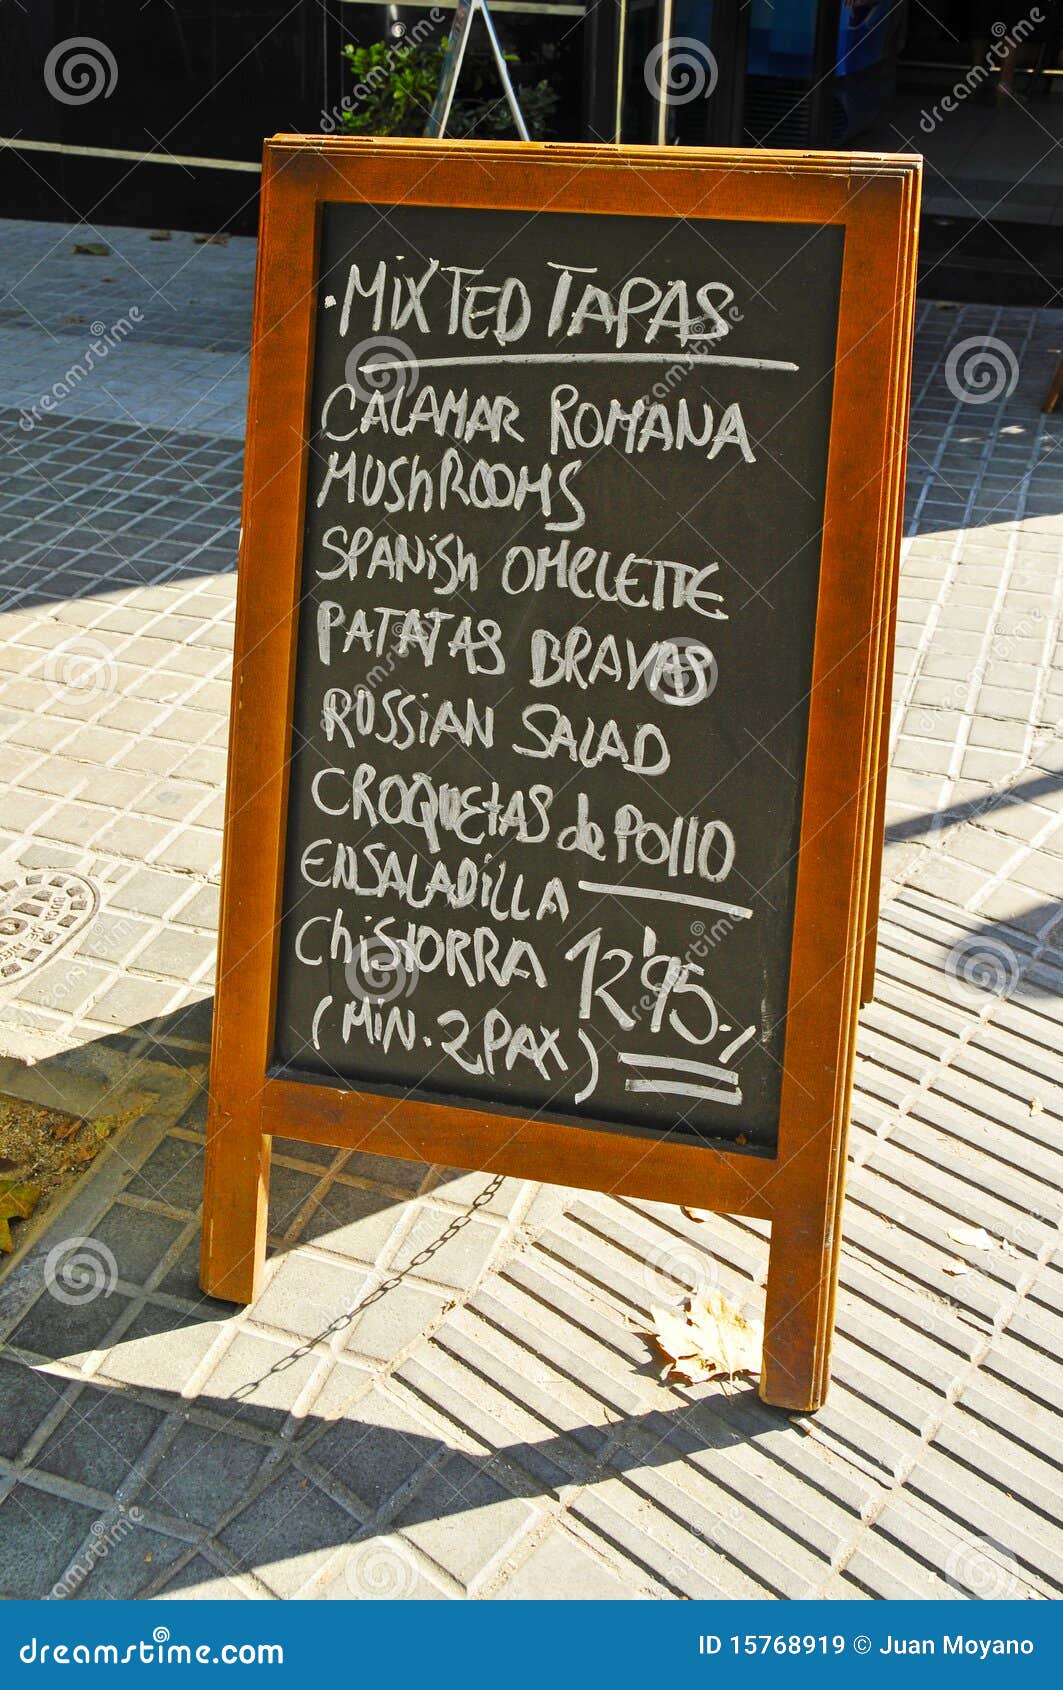 ·MIXTED TAPAS
CALAMAR ROMANA
MUShROOMS
SPANiSh OMELETTE
PATATAS BRAVAS
RUSSiAN SALAD
CROQUEtAS de POllO
ENSALADiLLA
ChiSTORRA 12'95.-/
(MiN. 2 PAX)
dreamstime.com
ID 15768919 © Juan Moyano